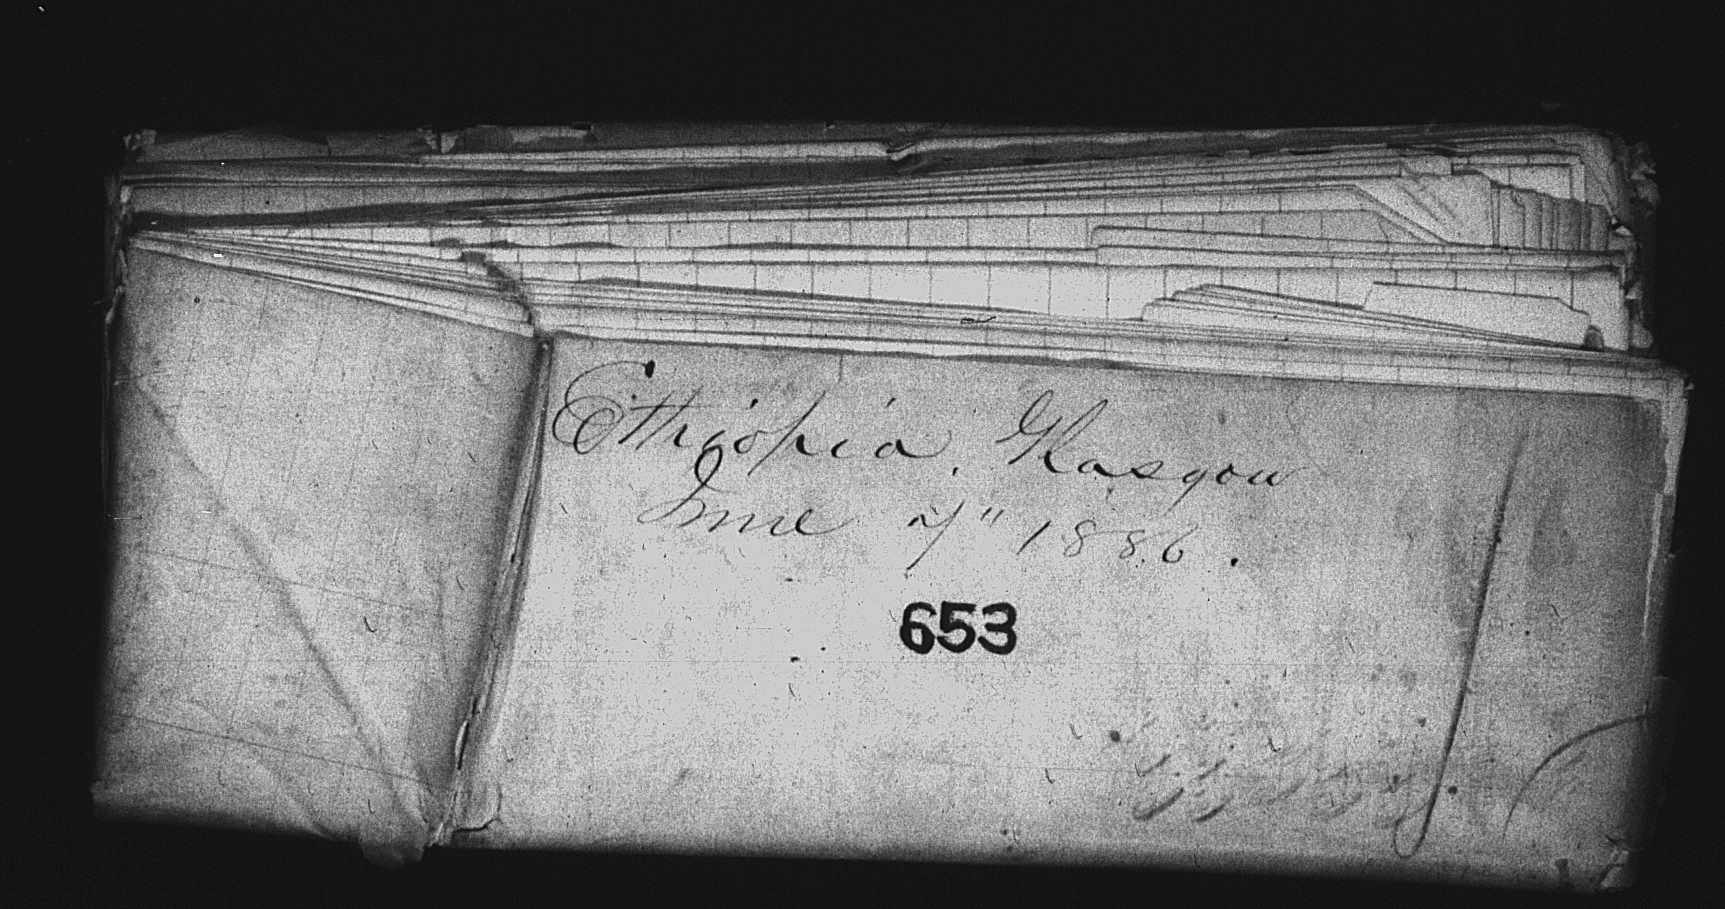 Ethiopia. Glasgow
June 7" 1886.
653